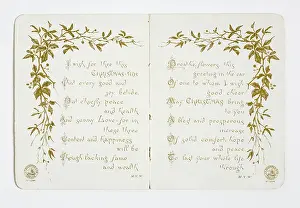 I wish for thee this
CHRISTMAS-tide
That every good and
joy betide
But chiefly peace
and health
And loving Love for in
these three
Content and happiness
will be
Though lacking fame
and wealth
greeting in the ear
Of one to whom I wish
good cheer
May CHRISTMAS bring
to you
A blest and prosperous
increase
Of solid comfort hope
and peace
To last your whole life
through